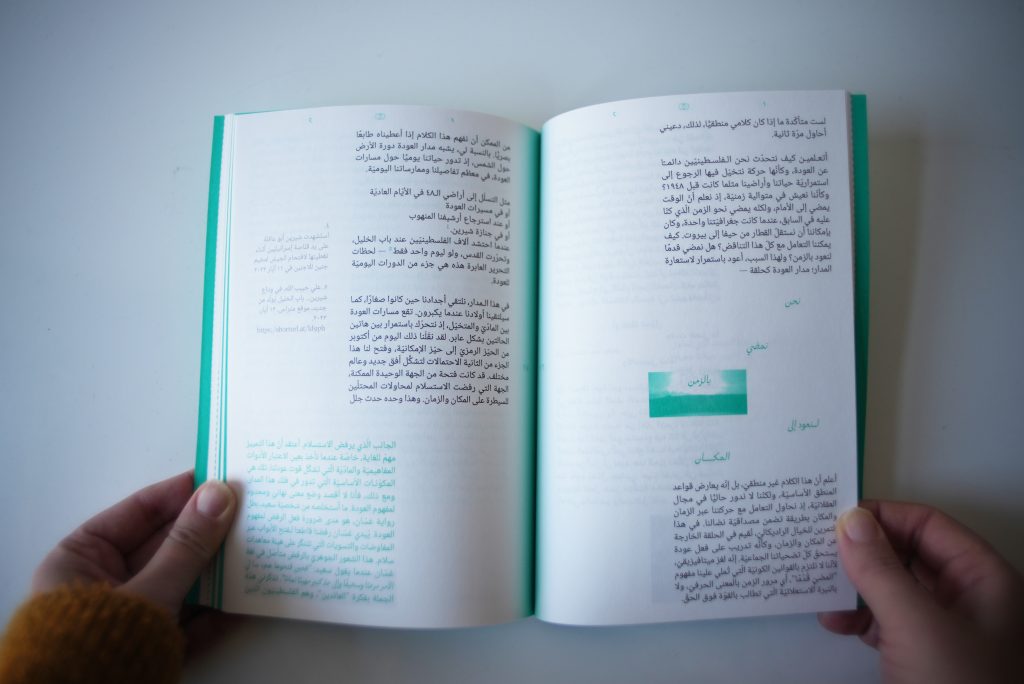 لست متأكّدة ما إذا كان كلامي منطقيًّا، لذلك، دعيني
أحاول مرّة ثانية.
أتعلمين كيف نتحدّث نحن الفلسطينيّين دائمًا
عن العودة، وكأنّها حركة نتخيّل فيها الرجوع إلى
استمراريّة حياتنا وأراضينا مثلما كانت قبل ١٩٤٨؟
وكأنّنا نعيش في متوالية زمنيّة، إذ نعلم أنّ الوقت
يمضي إلى الأمام، ولكنّه يمضي نحو الزمن الّذي كنّا
عليه في السابق، عندما كانت جغرافيّتنا واحدة، وكان
بإمكاننا أن نستقلّ القطار من حيفا إلى بيروت. كيف
يمكننا التعامل مع كلّ هذا التناقض؟ هل نمضي قدمًا
لنعود بالزمن؟ ولهذا السبب، أعود باستمرار لاستعارة
المدار؛ مدار العودة كحلقة —
نحن
نمضي
بالزمن
لنعود إلى
المكـــان
أعلم أنّ هذا الكلام غير منطقيّ، بل إنّه يعارض قواعد
المنطق الأساسيّة، ولكنّنا لا ندور حاليًّا في مجال
العقلانيّة، إذ نحاول التعامل مع حركتنا عبر الزمان
والمكان بطريقة تضمن مصداقيّة نضالنا. في هذا
التمرين للخيال الراديكالي، نُقيم في الحلقة الخارجة
عن المكان والزمان، وكأنّه تدريب على فعل عودة
يستحقّ كل تضحياتنا الجماعيّة. إنّه لغز ميتافيزيقي،
لأنّنا لا نلتزم بالقوانين الكونيّة التي تملي علينا مفهوم
"المضي قدمًا"، أي مرور الزمن بالمعنى الحرفي، ولا
بالنبرة الاستعلائيّة التي تطالب بالقوّة فوق الحقّ.
من الممكن أن نفهم هذا الكلام إذا أعطيناه طابعًا
بصريًّا. بالنسبة لي، يشبه مدار العودة دورة الأرض
حول الشمس، إذ تدور حياتنا يوميًّا حول مسارات
العودة، في معظم تفاصيلنا وممارساتنا اليوميّة.
مثل التسلّل إلى أراضي الـ٤٨ في الأيّام العاديّة
أو في مسيرات العودة
أو عند استرجاع أرشيفنا المنهوب
أو في جنازة شيرين.
عندما احتشد آلاف الفلسطينيّين عند باب الخليل،
وتحرّرت القدس، ولو ليوم واحد فقط — لحظات
التحرير العابرة هذه هي جزء من الدورات اليوميّة
للعودة.
في هذا المدار، نلتقي أجدادنا حين كانوا صغارًا، كما
سيلتقينا أولادنا عندما يكبرون. تقع مسارات العودة
بين المادّيّ والمتخيّل، إذ نتحرّك باستمرار بين هاتين
الحالتين بشكل عابر. لقد نقلنا ذلك اليوم من أكتوبر
من الحيّز الرمزيّ إلى حيّز الإمكانيّة، وفتح لنا هذا
الجزء من الثانية الاحتمالات لتشكّل أفق جديد وعالم
مختلف. قد كانت فتحة من الجهة الوحيدة الممكنة،
الجهة التي رفضت الاستسلام لمحاولات المحتلّين
للسيطرة على المكان والزمان. وهذا وحده حدث جلل
الجانب الّذي يرفض الاستسلام. أعتقد أنّ هذا التمييز
مهم للغاية، خاصّة عندما نأخذ بعين الاعتبار الأدوات
المفاهيميّة والمادّيّة الّتي تشكّل قوت عودتنا، تلك هي
المكوّنات الأساسيّة التي تدور في فلك هذا المدار.
ومع ذلك، فأنا لا أقصد وضع معنى نهائي ومعدود